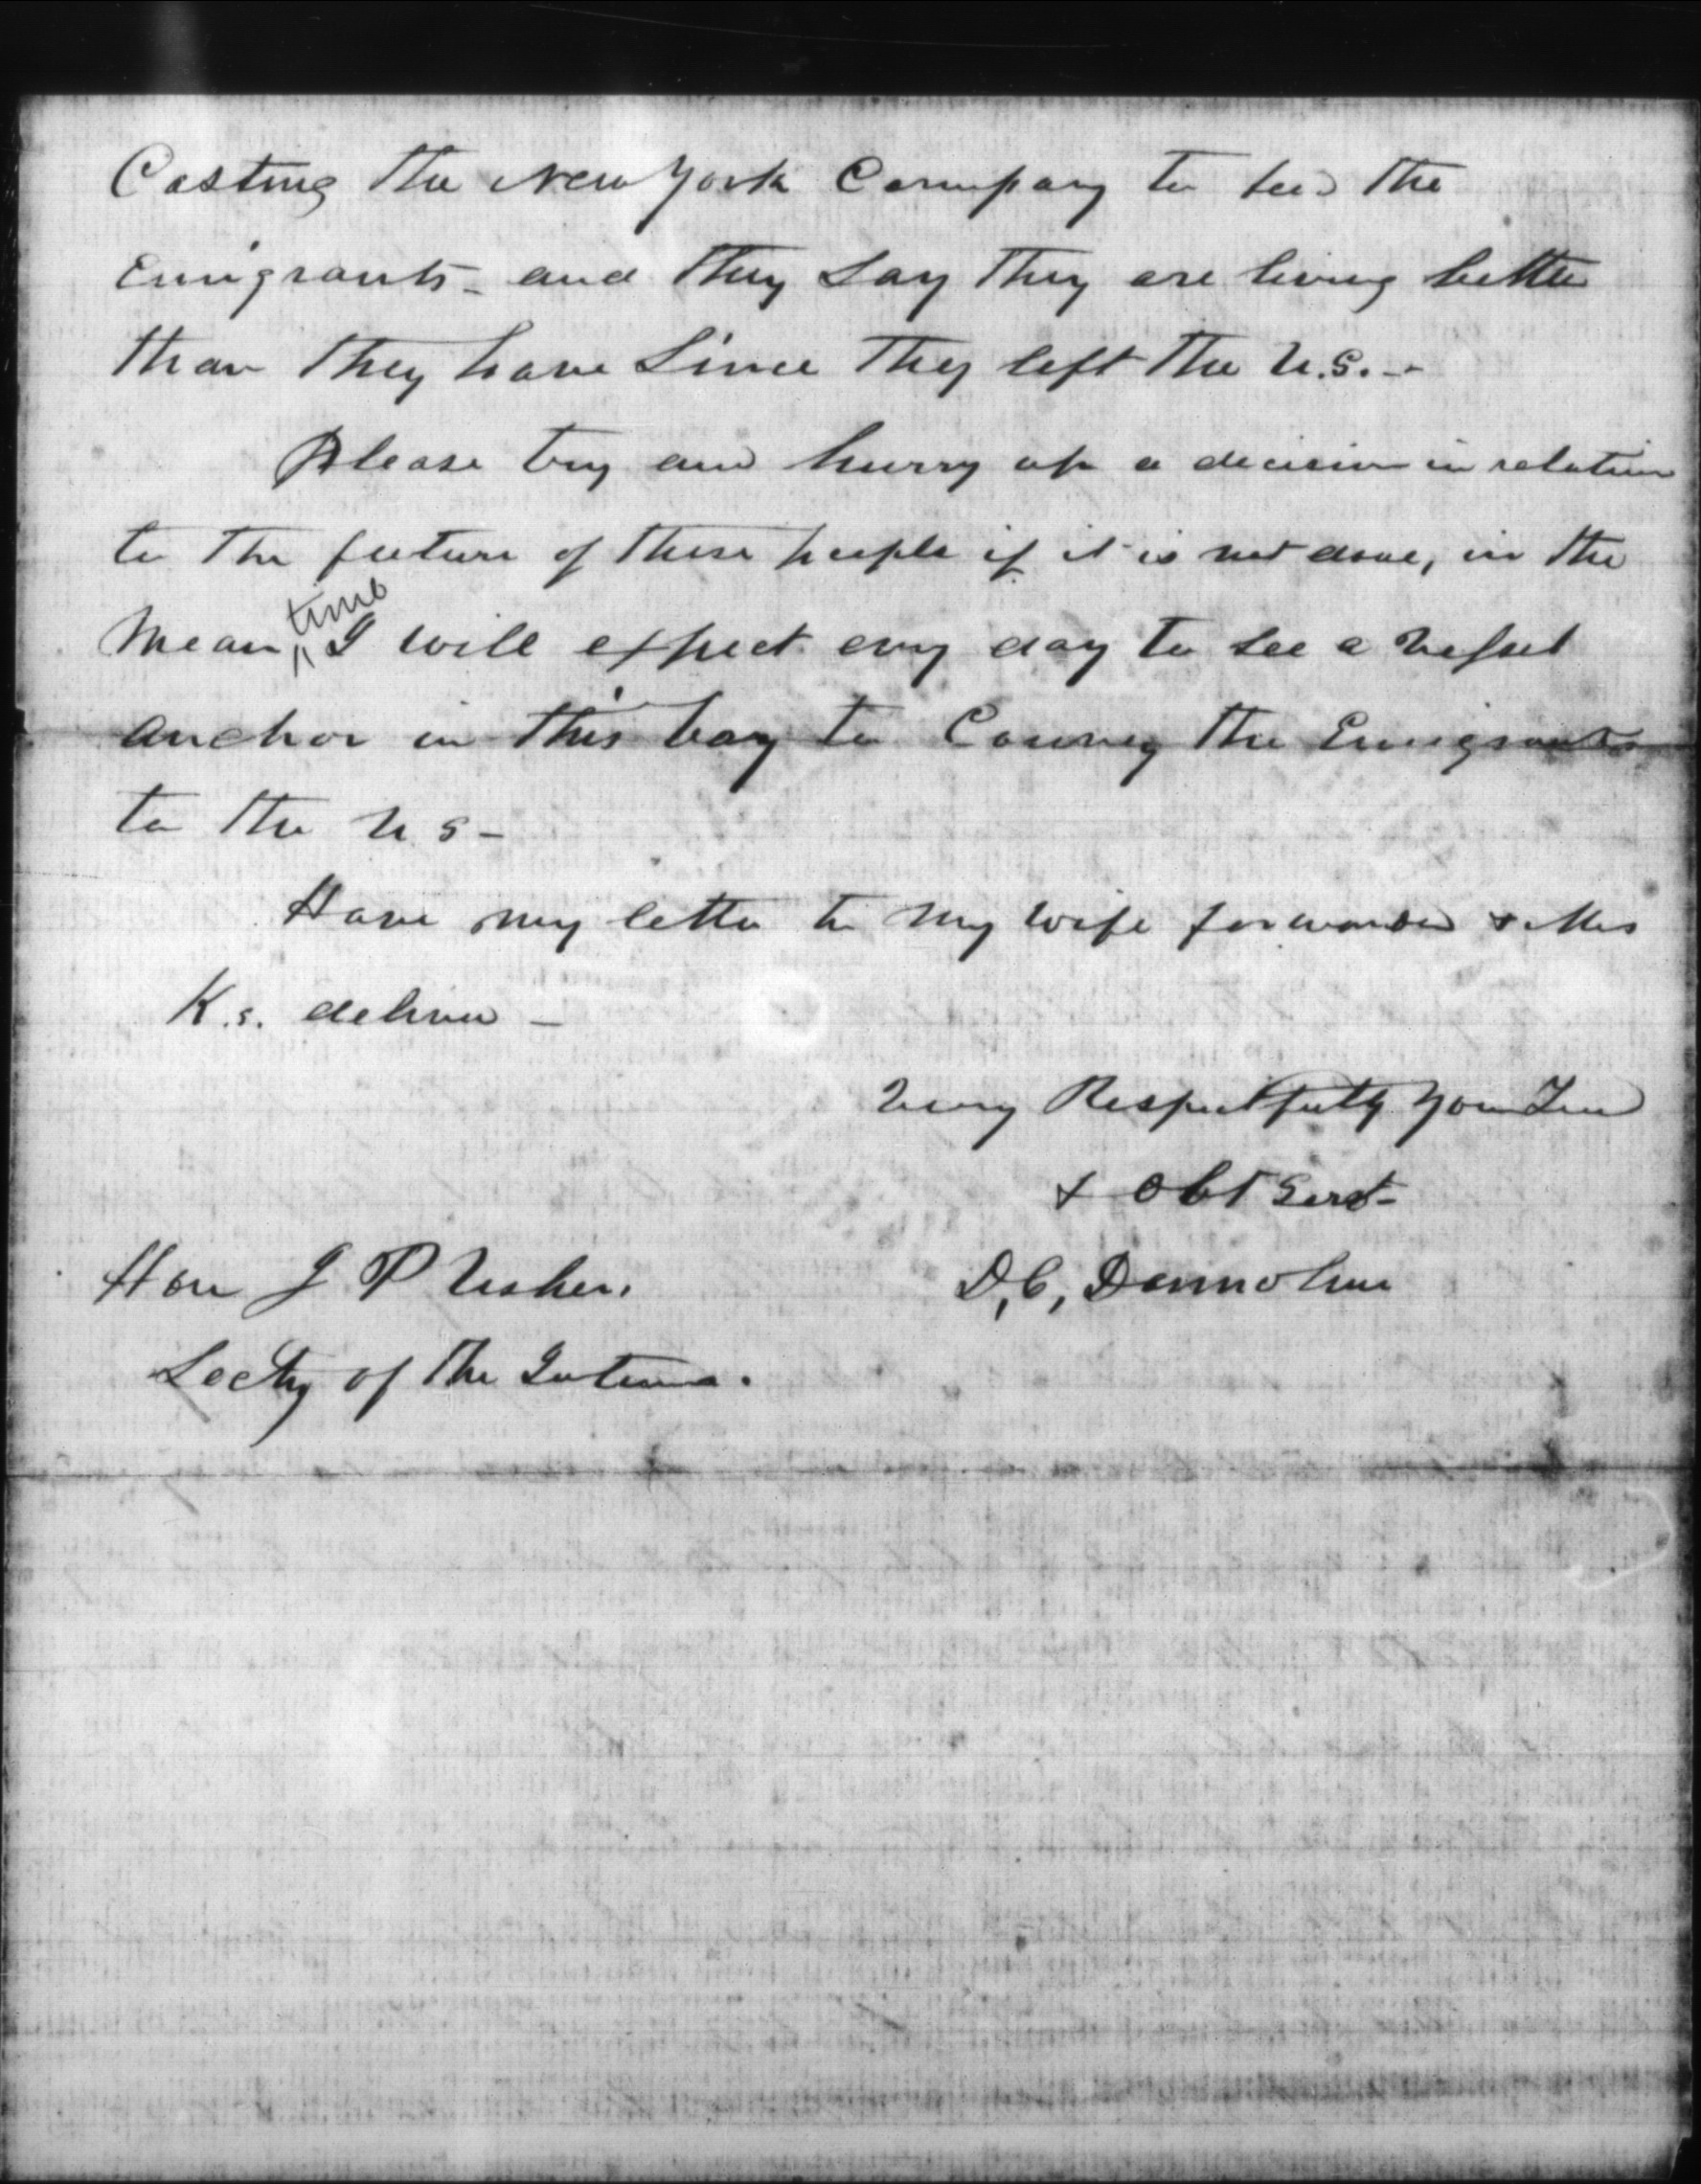 Costing the New York Company to feed the
Emigrants - and they say they are living better
than they have since they left the U.S. -
Please try and hurry up a decision in relation
to the future of these people if it is not done, in the
mean time I will expect evry day to see a vessel
anchor in this bay to Convey the Emigrants
to the U S -
Have my letter to my wife forwarded & Mrs
K.s. deliver -
Very Respectfully Your Fnd
& Obt Servt -
Hon J P Usher. D, C, Donnohue
Secty of the Interior.